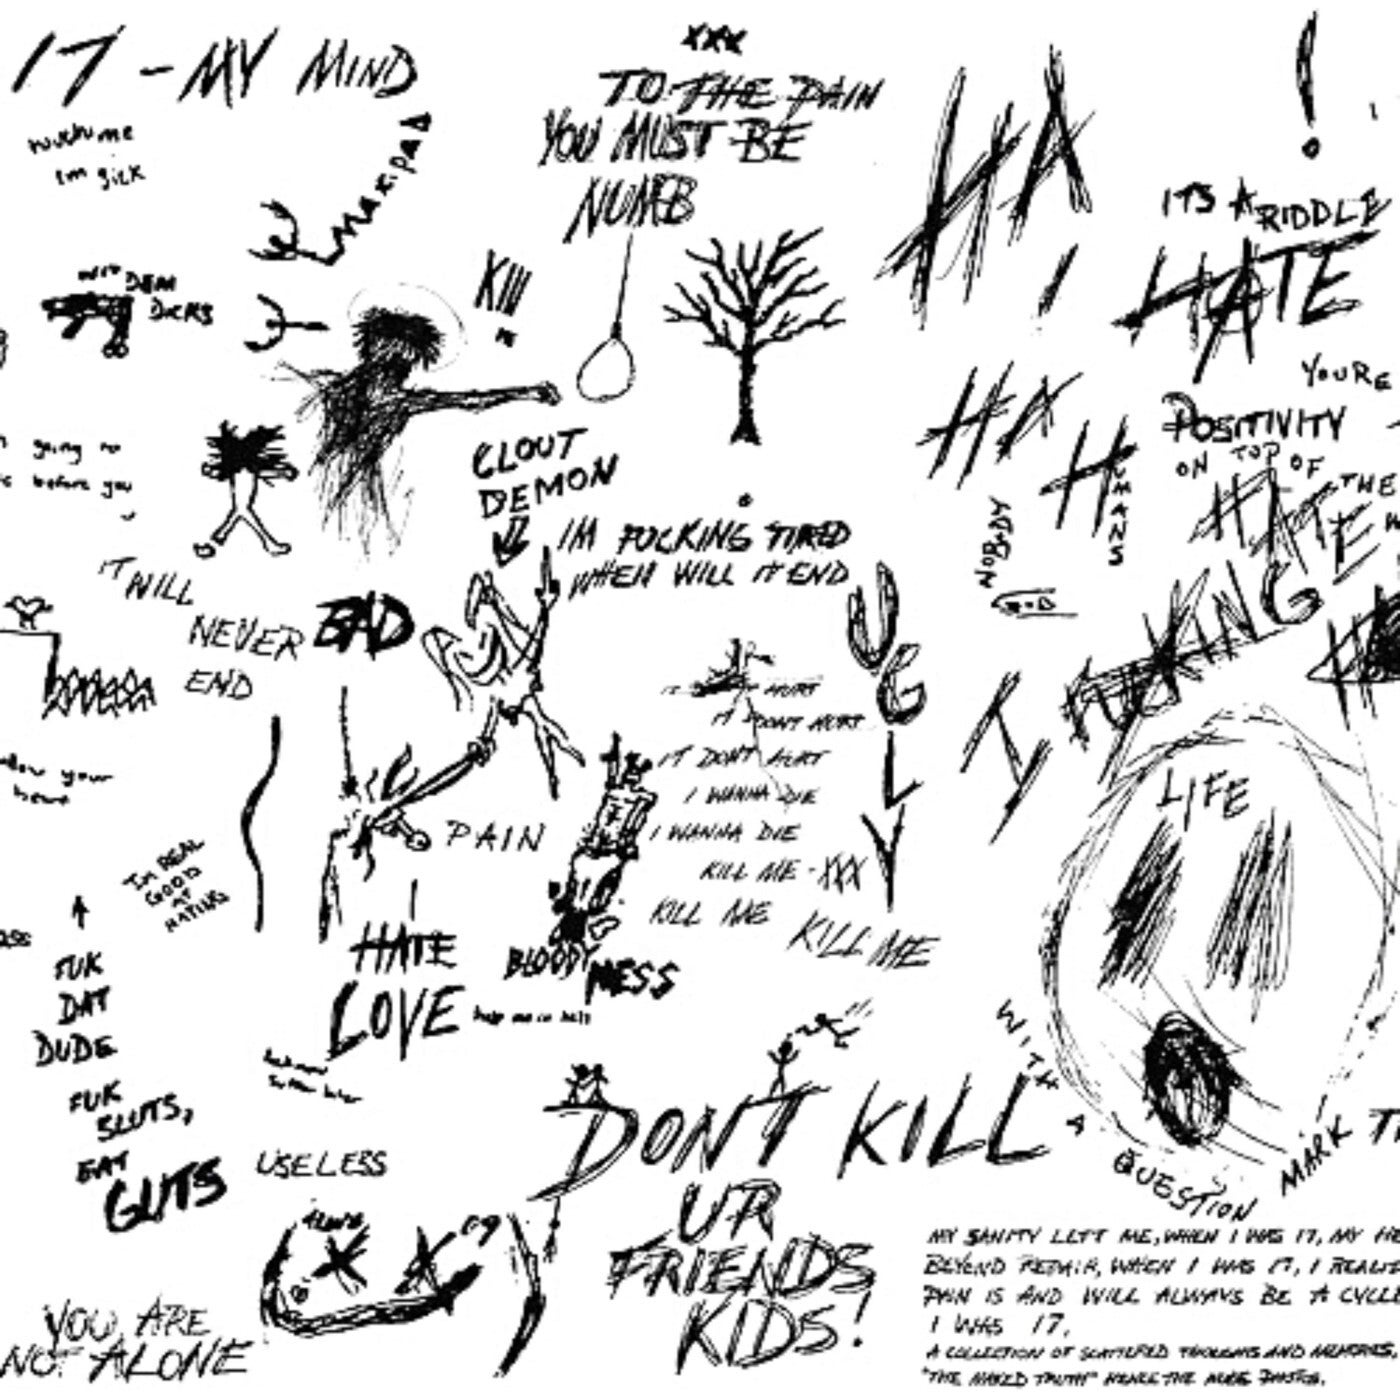 17 - MY MIND
im sick
XXX
TO THE PAIN
YOU MUST BE
NUMB
HA
!
ITS A RIDDLE
HATE
KIll
DEM
DICKS
YOURE
POSITIVITY
ON TOP OF
THE
HATE
HA
HUMANS
NOBODY
CLOUT
DEMON
going no
before you
IM FUCKING TIRED
WHEN WILL IT END
IT WILL
NEVER
END
BAD
UGLY
I FUCKING
IT DONT HURT
IT DONT HURT
IT DONT HURT
I WANNA DIE
I WANNA DIE
KILL ME - XXX
KILL ME
KILL ME
LIFE
your
PAIN
IM REAL
GOOD
AT
HATING
FUK
DAT
DUDE
FUK
SLUTS,
EAT
GUTS
HATE
LOVE
BLOODY
MESS
WITH A QUESTION MARK
USELESS
DONT KILL
UR
FRIENDS
KIDS!
YOU ARE
NOT ALONE
MY SANITY LEFT ME, WHEN I WAS 17, MY
BEYOND REPAIR, WHEN I WAS 17, I
PAIN IS AND WILL ALWAYS BE A
I WAS 17.
A COLLECTION OF SCATTERED THOUGHTS AND MEMORIES,
"THE NAKED TRUTH" HENCE THE NUDE